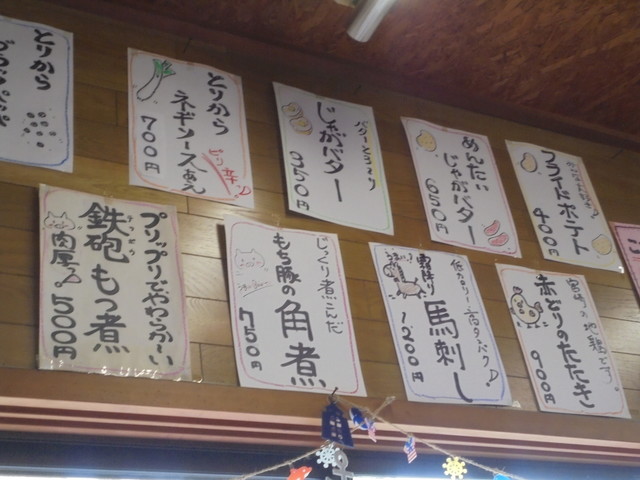 とりから
ブラックペッパ
とりから
ネギソースあえ
ピリ辛♪
700円
バターとろ〜り
じゃがバター
350円
めんたい
じゃがバター
650円
フライドポテト
400円
プリップリでやわらか〜い
てっぽう
鉄砲もつ煮
肉厚♪
500円
じっくり煮こんだ
もち豚の
角煮
750円
低カロリー高タンパク♪
霜降り
馬刺し
1200円
宮崎の地鶏です。
赤どりのたたき
900円